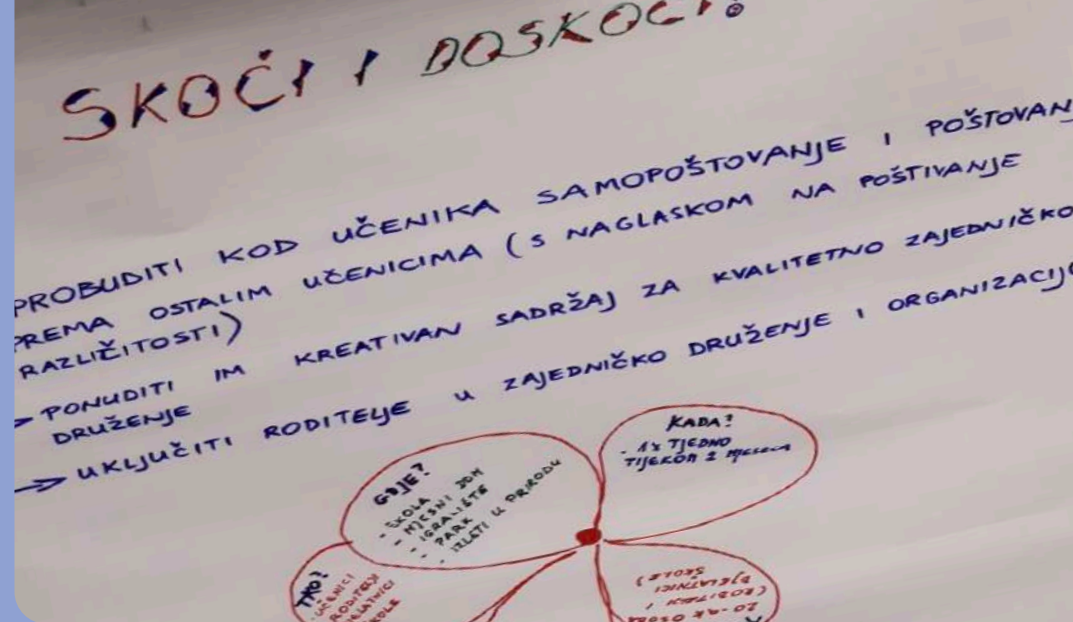 SKOČI I DOSKOČI!
PROBUDITI KOD UČENIKA SAMOPOŠTOVANJE I POŠTOVANJ
PREMA OSTALIM UČENICIMA (S NAGLASKOM NA POŠTIVANJE
RAZLIČITOSTI)
→ PONUDITI IM KREATIVAN SADRŽAJ ZA KVALITETNO ZAJEDNIČKO
DRUŽENJE
→ UKLJUČITI RODITELJE U ZAJEDNIČKO DRUŽENJE I ORGANIZACIJ
GDJE?
- ŠKOLA
- MJESNI DOM
- IGRALIŠTE
- PARK
- IZLETI U PRIRODU
KADA?
- 1x TJEDNO
TIJEKOM 2 MJESECA
TKO?
- UČENICI
RODITELJI
DJELATNICI
ŠKOLE
20-AK OSOBA
(RODITELJI I
DJELATNICI
ŠKOLE)